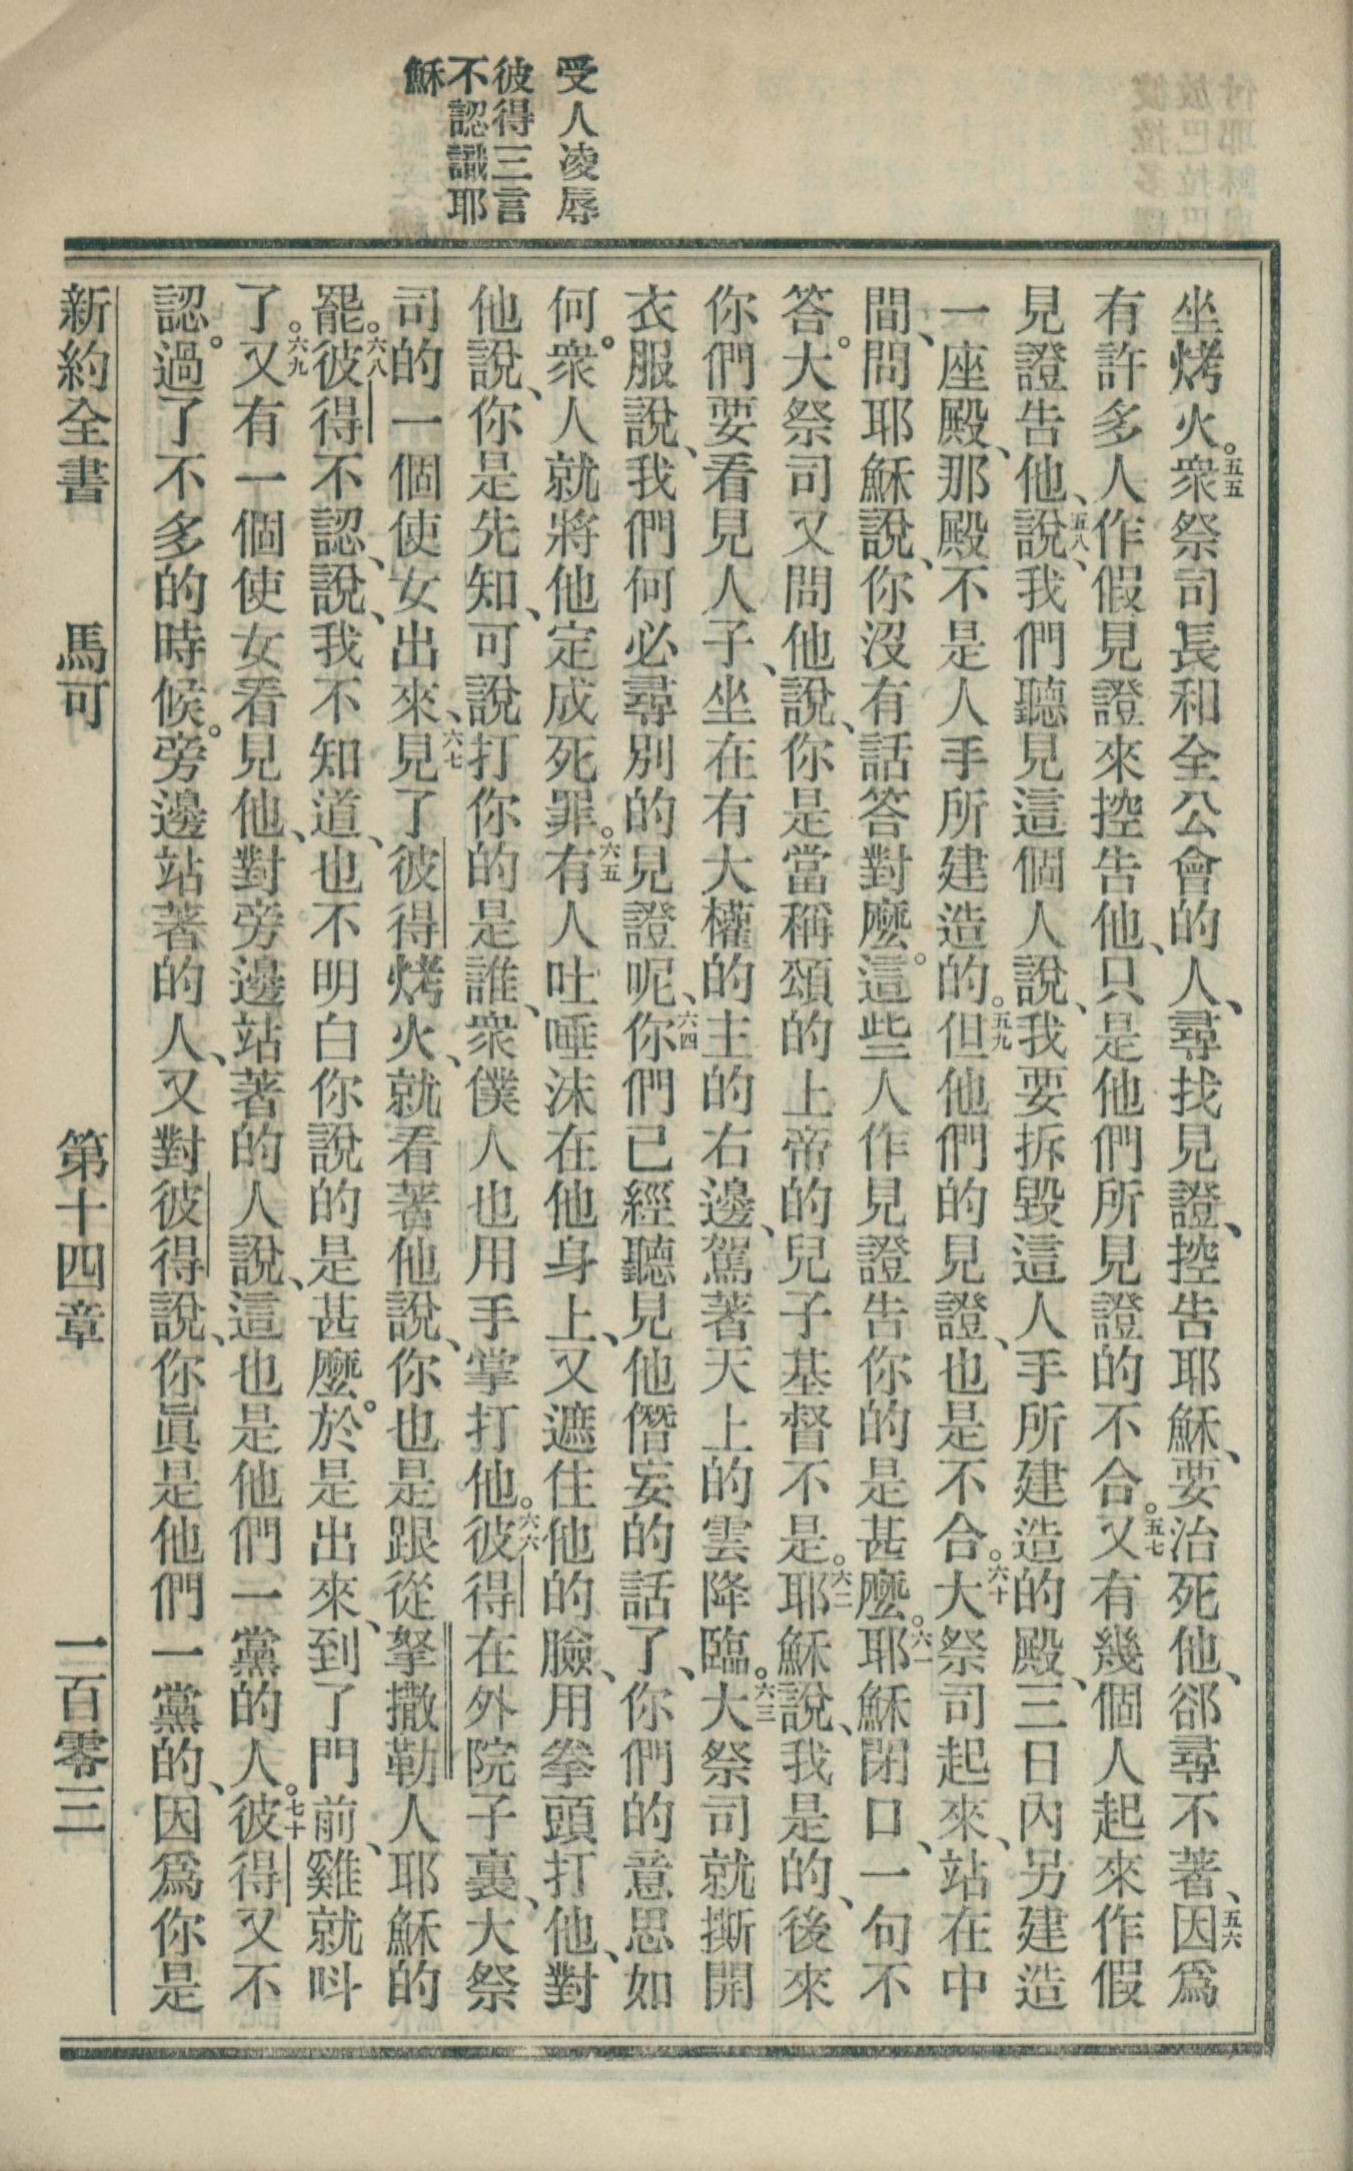 受人凌辱
彼得三言
不認識耶
穌
坐烤火。五五衆祭司長和全公會的人、尋找見證、控告耶穌、要治死他、郤尋不著、五六因爲
有許多人作假見證來控告他、只是他們所見證的不合。五七又有幾個人起來作假
見證告他、五八說、我們聽見這個人說、我要拆毀這人手所建造的殿、三日內另建造
一座殿、那殿不是人手所建造的。五九但他們的見證、也是不合。六十大祭司起來、站在中
間、問耶穌說、你沒有話答對麼。這些人作見證告你的是甚麼。六一耶穌閉口、一句不
答。大祭司又問他說、你是當稱頌的上帝的兒子基督不是。六二耶穌說、我是的、後來
你們要看見人子、坐在有大權的主的右邊、駕著天上的雲降臨。六三大祭司就撕開
衣服說、我們何必尋別的見證呢、六四你們已經聽見他僭妄的話了、你們的意思如
何。衆人就將他定成死罪。六五有人吐唾沫在他身上、又遮住他的臉、用拳頭打他、對
他說、你是先知、可說打你的是誰、衆僕人也用手掌打他。六六彼得在外院子裏、大祭
司的一個使女出來、六七見了彼得烤火、就看著他說、你也是跟從拏撒勒人耶穌的
罷。六八彼得不認、說、我不知道、也不明白你說的是甚麼。於是出來、到了門前、雞就呌
了。六九又有一個使女看見他、對旁邊站著的人說、這也是他們一黨的人。七十彼得又不
認。過了不多的時候。旁邊站著的人、又對彼得說、你眞是他們一黨的、因爲你是
新約全書 馬可 第十四章 一百零三